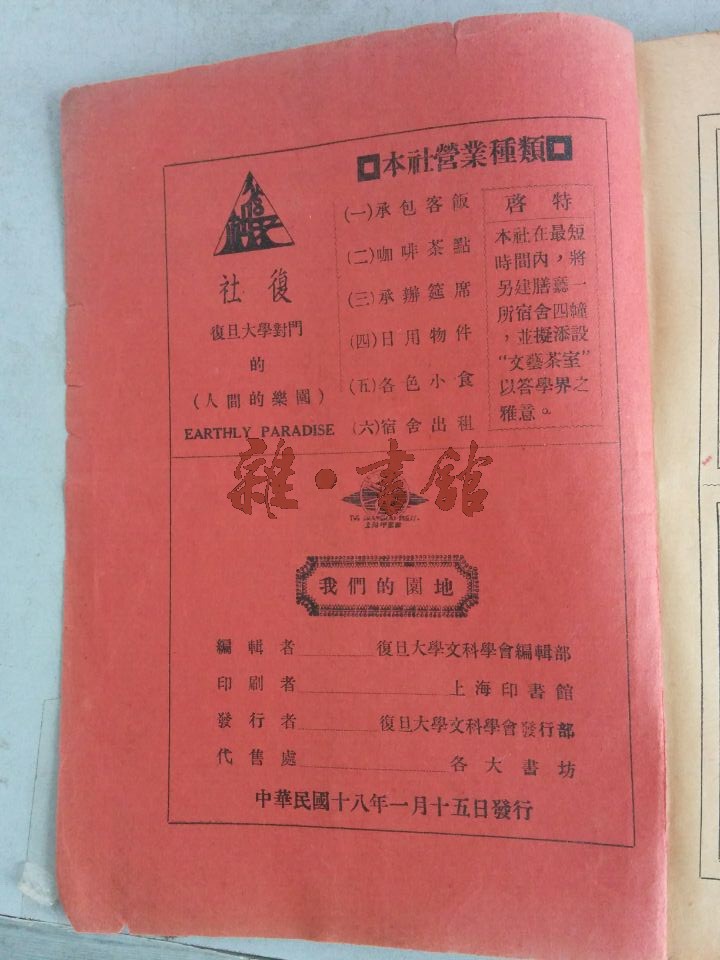 本社營業種類
社復
復旦大學對門
的
(人間的樂園)
EARTHLY PARADISE
(一)承包客飯
(二)咖啡茶點
(三)承辦筵席
(四)日用物件
(五)各色小食
(六)宿舍出租
啓特
本社在最短
時間內，將
另建膳廳一
所宿舍四幢
，並擬添設
“文藝茶室”
以答學界之
雅意。
雜·書館
上海印書館
我們的園地
編輯者 復旦大學文科學會編輯部
印刷者 上海印書館
發行者 復旦大學文科學會發行部
代售處 各大書坊
中華民國十八年一月十五日發行